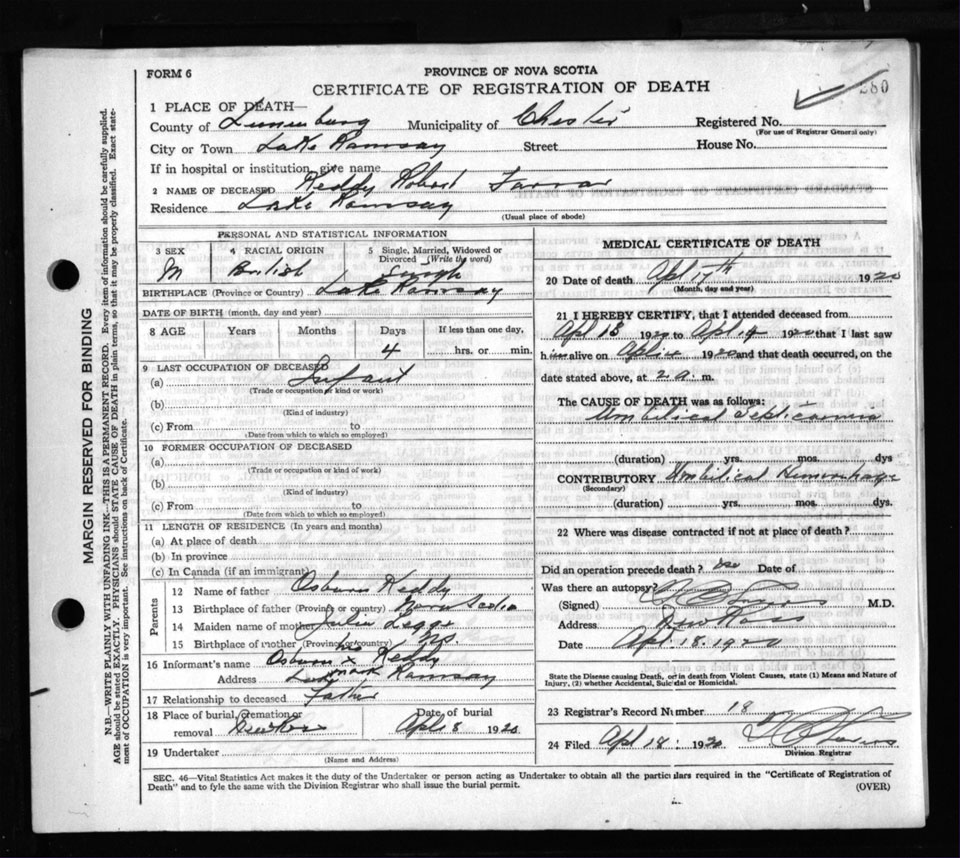 FORM 6
PROVINCE OF NOVA SCOTIA
CERTIFICATE OF REGISTRATION OF DEATH
280
1 PLACE OF DEATH—
County of Lunenburg Municipality of Chester Registered No.
(For use of Registrar General only)
City or Town Lake Ramsay Street House No.
If in hospital or institution, give name
2 NAME OF DECEASED Reddy Robert Farrar
Residence Lake Ramsay
(Usual place of abode)
PERSONAL AND STATISTICAL INFORMATION
3 SEX 4 RACIAL ORIGIN 5 Single, Married, Widowed or Divorced (Write the word)
M British Single
BIRTHPLACE (Province or Country) Lake Ramsay
DATE OF BIRTH (month, day and year)
8 AGE Years Months Days If less than one day,
4 hrs. or min.
9 LAST OCCUPATION OF DECEASED
(a) Infant
(Trade or occupation or kind or work)
(b)
(Kind of industry)
(c) From to
(Date from which to which so employed)
10 FORMER OCCUPATION OF DECEASED
(a)
(Trade or occupation or kind of work)
(b)
(Kind of industry)
(c) From to
(Date from which to which so employed)
11 LENGTH OF RESIDENCE (In years and months)
(a) At place of death
(b) In province
(c) In Canada (if an immigrant)
Parents
12 Name of father Osburn Reddy
13 Birthplace of father (Province or country) Nova Scotia
14 Maiden name of mother Julia Legge
15 Birthplace of mother (Province or country) N.S.
16 Informant's name Osburn his Reddy
mark
Address Lake Ramsay
17 Relationship to deceased Father
18 Place of burial, cremation or removal Date of burial
Apl 8 1920
19 Undertaker
(Name and Address)
MEDICAL CERTIFICATE OF DEATH
20 Date of death Apl 17th 1920
(Month, day and year)
21 I HEREBY CERTIFY, that I attended deceased from
Apl 13 1920 to Apl 14 1920 that I last saw
him alive on 1920 and that death occurred, on the
date stated above, at 2 a. m.
The CAUSE OF DEATH was as follows:
Umbilical Septicaemia
(duration) yrs. mos. dys
CONTRIBUTORY Umbilical Hemorrhage
(Secondary)
(duration) yrs. mos. dys.
22 Where was disease contracted if not at place of death?
Did an operation precede death? no Date of
Was there an autopsy?
(Signed) M.D.
Address New Ross
Date Apl. 18. 1920
State the Disease causing Death, or in death from Violent Causes, state (1) Means and Nature of
Injury, (2) whether Accidental, Suicidal or Homicidal.
23 Registrar's Record Number 18
24 Filed Apl 18 1920
Division Registrar
SEC. 46—Vital Statistics Act makes it the duty of the Undertaker or person acting as Undertaker to obtain all the particulars required in the "Certificate of Registration of
Death" and to fyle the same with the Division Registrar who shall issue the burial permit.
(OVER)
MARGIN RESERVED FOR BINDING
N.B.—WRITE PLAINLY WITH UNFADING INK—THIS IS A PERMANENT RECORD. Every item of information should be carefully supplied.
AGE should be stated EXACTLY. PHYSICIANS should STATE CAUSE OF DEATH in plain terms, so that it may be properly classified. Exact statement of OCCUPATION is very important. See instructions on back of Certificate.